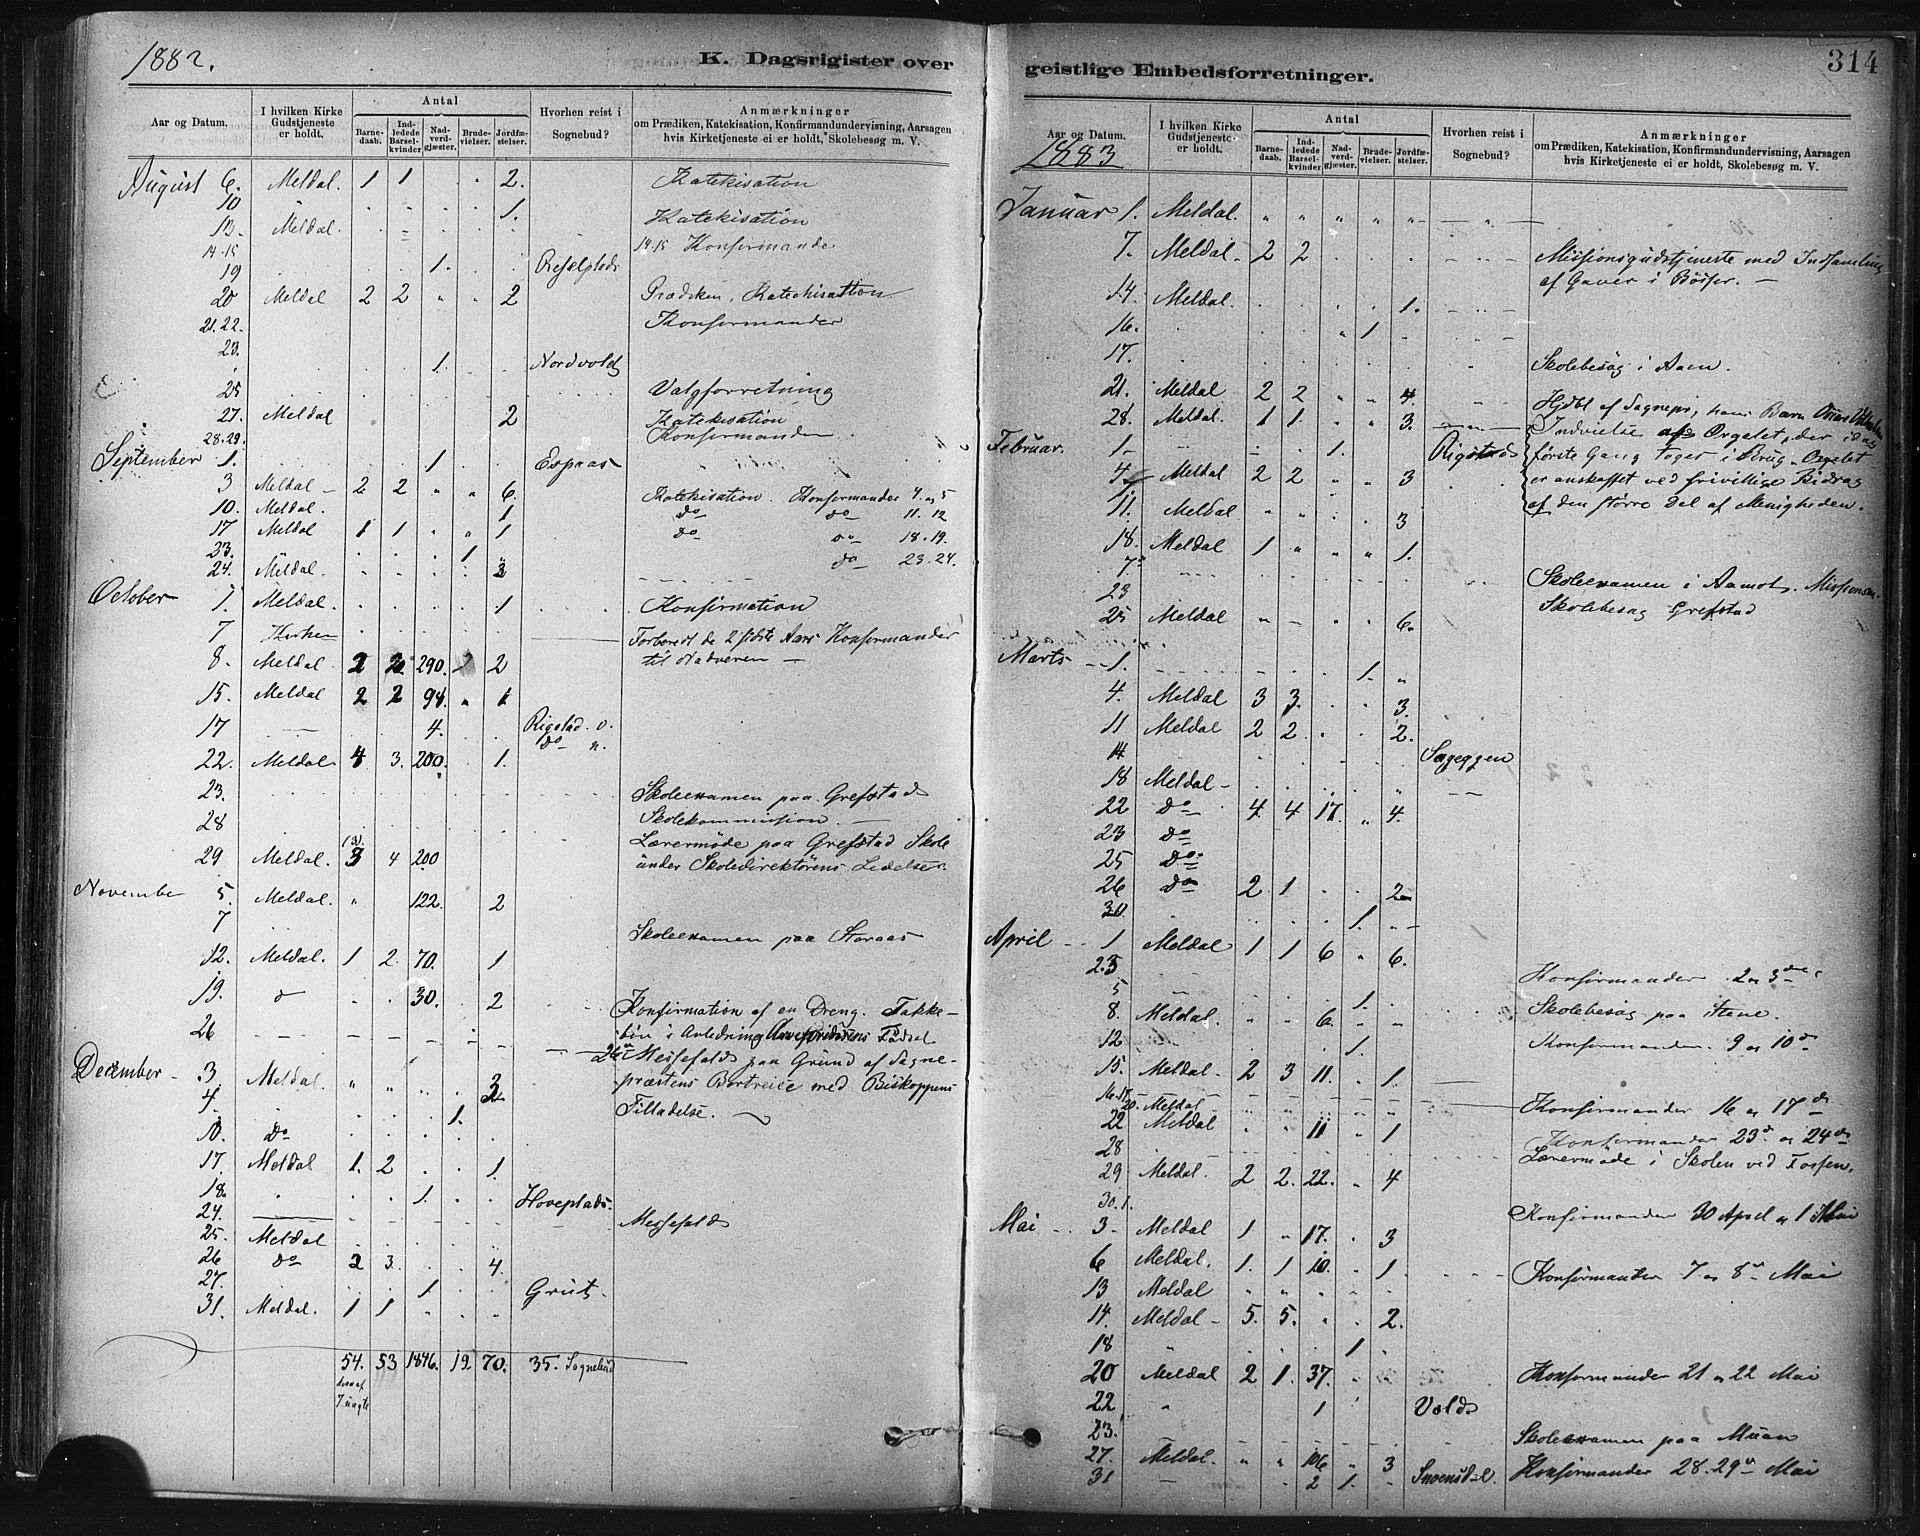 1882.
K. Dagsrigister over
Aar og Datum. | I hvilken Kirke Gudstjeneste er holdt. | Antal | Barnedaab. | Indledede Barselkvinder | Nadverdgjæster. | Brudevielser. | Jordfæstelser. | Hvorhen reist i Sognebud? | Anmærkninger om Prædiken, Katekisation, Konfirmandundervisning, Aarsagen hvis Kirketjeneste ei er holdt, Skolebesøg m. V.
August 6. Meldal. 1 1 . . 2. Katekisation
10 . . . . 1.
13. Meldal. . . . . Katekisation
14.15 14.15 Konfirmande
19 . . 1. . .
20 Meldal 2 2 " " 2 Prædiken, Katechisation
21.22. Konfirmander
23. 1. Nordvold
25 Valgforretning
27. Meldal 2 Katekisation
28.29. Konfirmander
September 1. 1 Espaas
3 Meldal 2 2 " " 6. Katekisation. Konfirmander 4. og 5
10. Meldal. 1 do do 11. 12
17 Meldal 1 1 " " 1 do do 18. 19.
23. 1 do 23. 24.
24. Meldal. 3
October 1. Meldal. 1 Konfirmation
7 Kirken Forberedt de 2 sidste Aars Konfirmander
8. Meldal. 2 2 290. 2 til Nadveren —
15. Meldal 2 2 94. " 1
17 — 4. Rigstad. o.
do n.
22. Meldal. 4 3. 200. 1.
23. Skoleexamen paa Grefstad
28 Skolekommission. —
(3)
29 Meldal. 3 4 200 Lærermøde paa Grefstad Skole
under Skoledirektörens Ledelse.
November 5. Meldal. " 122. 2
7 Skoleexamen paa Storaas
12. Meldal. 1 2. 70. 1
19. 30. 2 Konfirmation af en Dreng. Takke-
26 — bön i Anledning Arveprindsens Födsel
26de Messefald paa Grund af Sogne-
December 3 Meldal. " " præstens Bortreise med Biskoppens
4. 1. Tilladelse.
10. do
17. Meldal 1. 2 1.
18. 1. Hoveplads.
24. — Messefald
25. Meldal
26 do 2 3. 4.
27. 1 Grut.
31. Meldal. 1 1
54. 53 1846. 19. 70. 35. Sognebud
hvoraf
7 uægte
314
geistlige Embedsforretninger.
Aar og Datum. | I hvilken Kirke Gudstjeneste er holdt. | Antal | Barnedaab. | Indledede Barselkvinder | Nadverdgjæster. | Brudevielser. | Jordfæstelser. | Hvorhen reist i Sognebud? | Anmærkninger om Prædiken, Katekisation, Konfirmandundervisning, Aarsagen hvis Kirketjeneste ei er holdt, Skolebesøg m. V.
1883
Januar 1. Meldal. " " " " " — " —
7. Meldal. 2 2 Missionsgudstjeneste med Indsamling
af Gaver i Bösser. —
14 Meldal. 1.
16. " 1
17. Skolebesøg i Aaen.
21. Meldal 2 2 " " 4.
28. Meldal. 1 1. " 3. Indvielse af Orgelet, der idag
Februar. 1. 1. Rigstad första Gang toges i Brug. Orgelet
4 Meldal 2 2 3 er anskaffet ved frivillige Bidrag
11. Meldal " " 3 af den större Del af Menigheden.
18. Meldal 1 " " " 1.
7.
23 Skoleexamen i Aamot.
Skolebesøg Grefstad
25 Meldal " 6.
Marts 1. 1. "
4. Meldal 3 3. 3.
11 Meldal 2 2. 2.
14 Sageggen
18 Meldal
22 do 4. 4 17. " 4.
23 do
25 do
26 do 2 1 2
30. 1.
April 1 Meldal 1 1 6 " 6.
2.3 Konfirmander 2 og 3de
5 1.
8. Meldal. 6. Skolebesøg paa Stene.
12 1. Konfirmander. 9 og 10de
15. Meldal. 2 3 11. 1.
16.17 Konfirmander 16 og 17de
20. Meldal
22 Meldal 11 1 Konfirmander 23de og 24de
28 Lærermöde i Skolen ved Fossen.
29 Meldal. 2 2. 22. " 4
30.1. Konfirmander 30 April og 1 Mai
Mai 3. Meldal 1 " 17. 3
6 Meldal. 1. 1 10. 1. Konfirmander 7 og 8de Mai
13 Meldal " "
14. Meldal 5. 5. 2.
18 " 1.
20 Meldal 2 1. 37. Konfirmander 21 og 22 Mai
22 " 1 Vold
23. Skoleexamen paa Muan
27. Meldal " " 106 " 3 Konfirmander 28. 29de Mai
31 — 2 1.